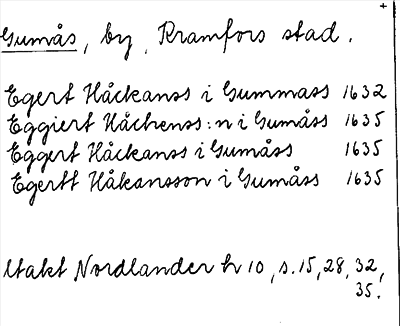 +
Gumås, by, Kramfors stad.
Egert Håckanss i Gummass 1632
Eggiert Håckenss:n i Gumåss 1635
Eggert Håckanss i Gumåss 1635
Egertt Håkansson i Gumåss 1635
Utakt Nordlander h 10, s. 15, 28, 32,
35.